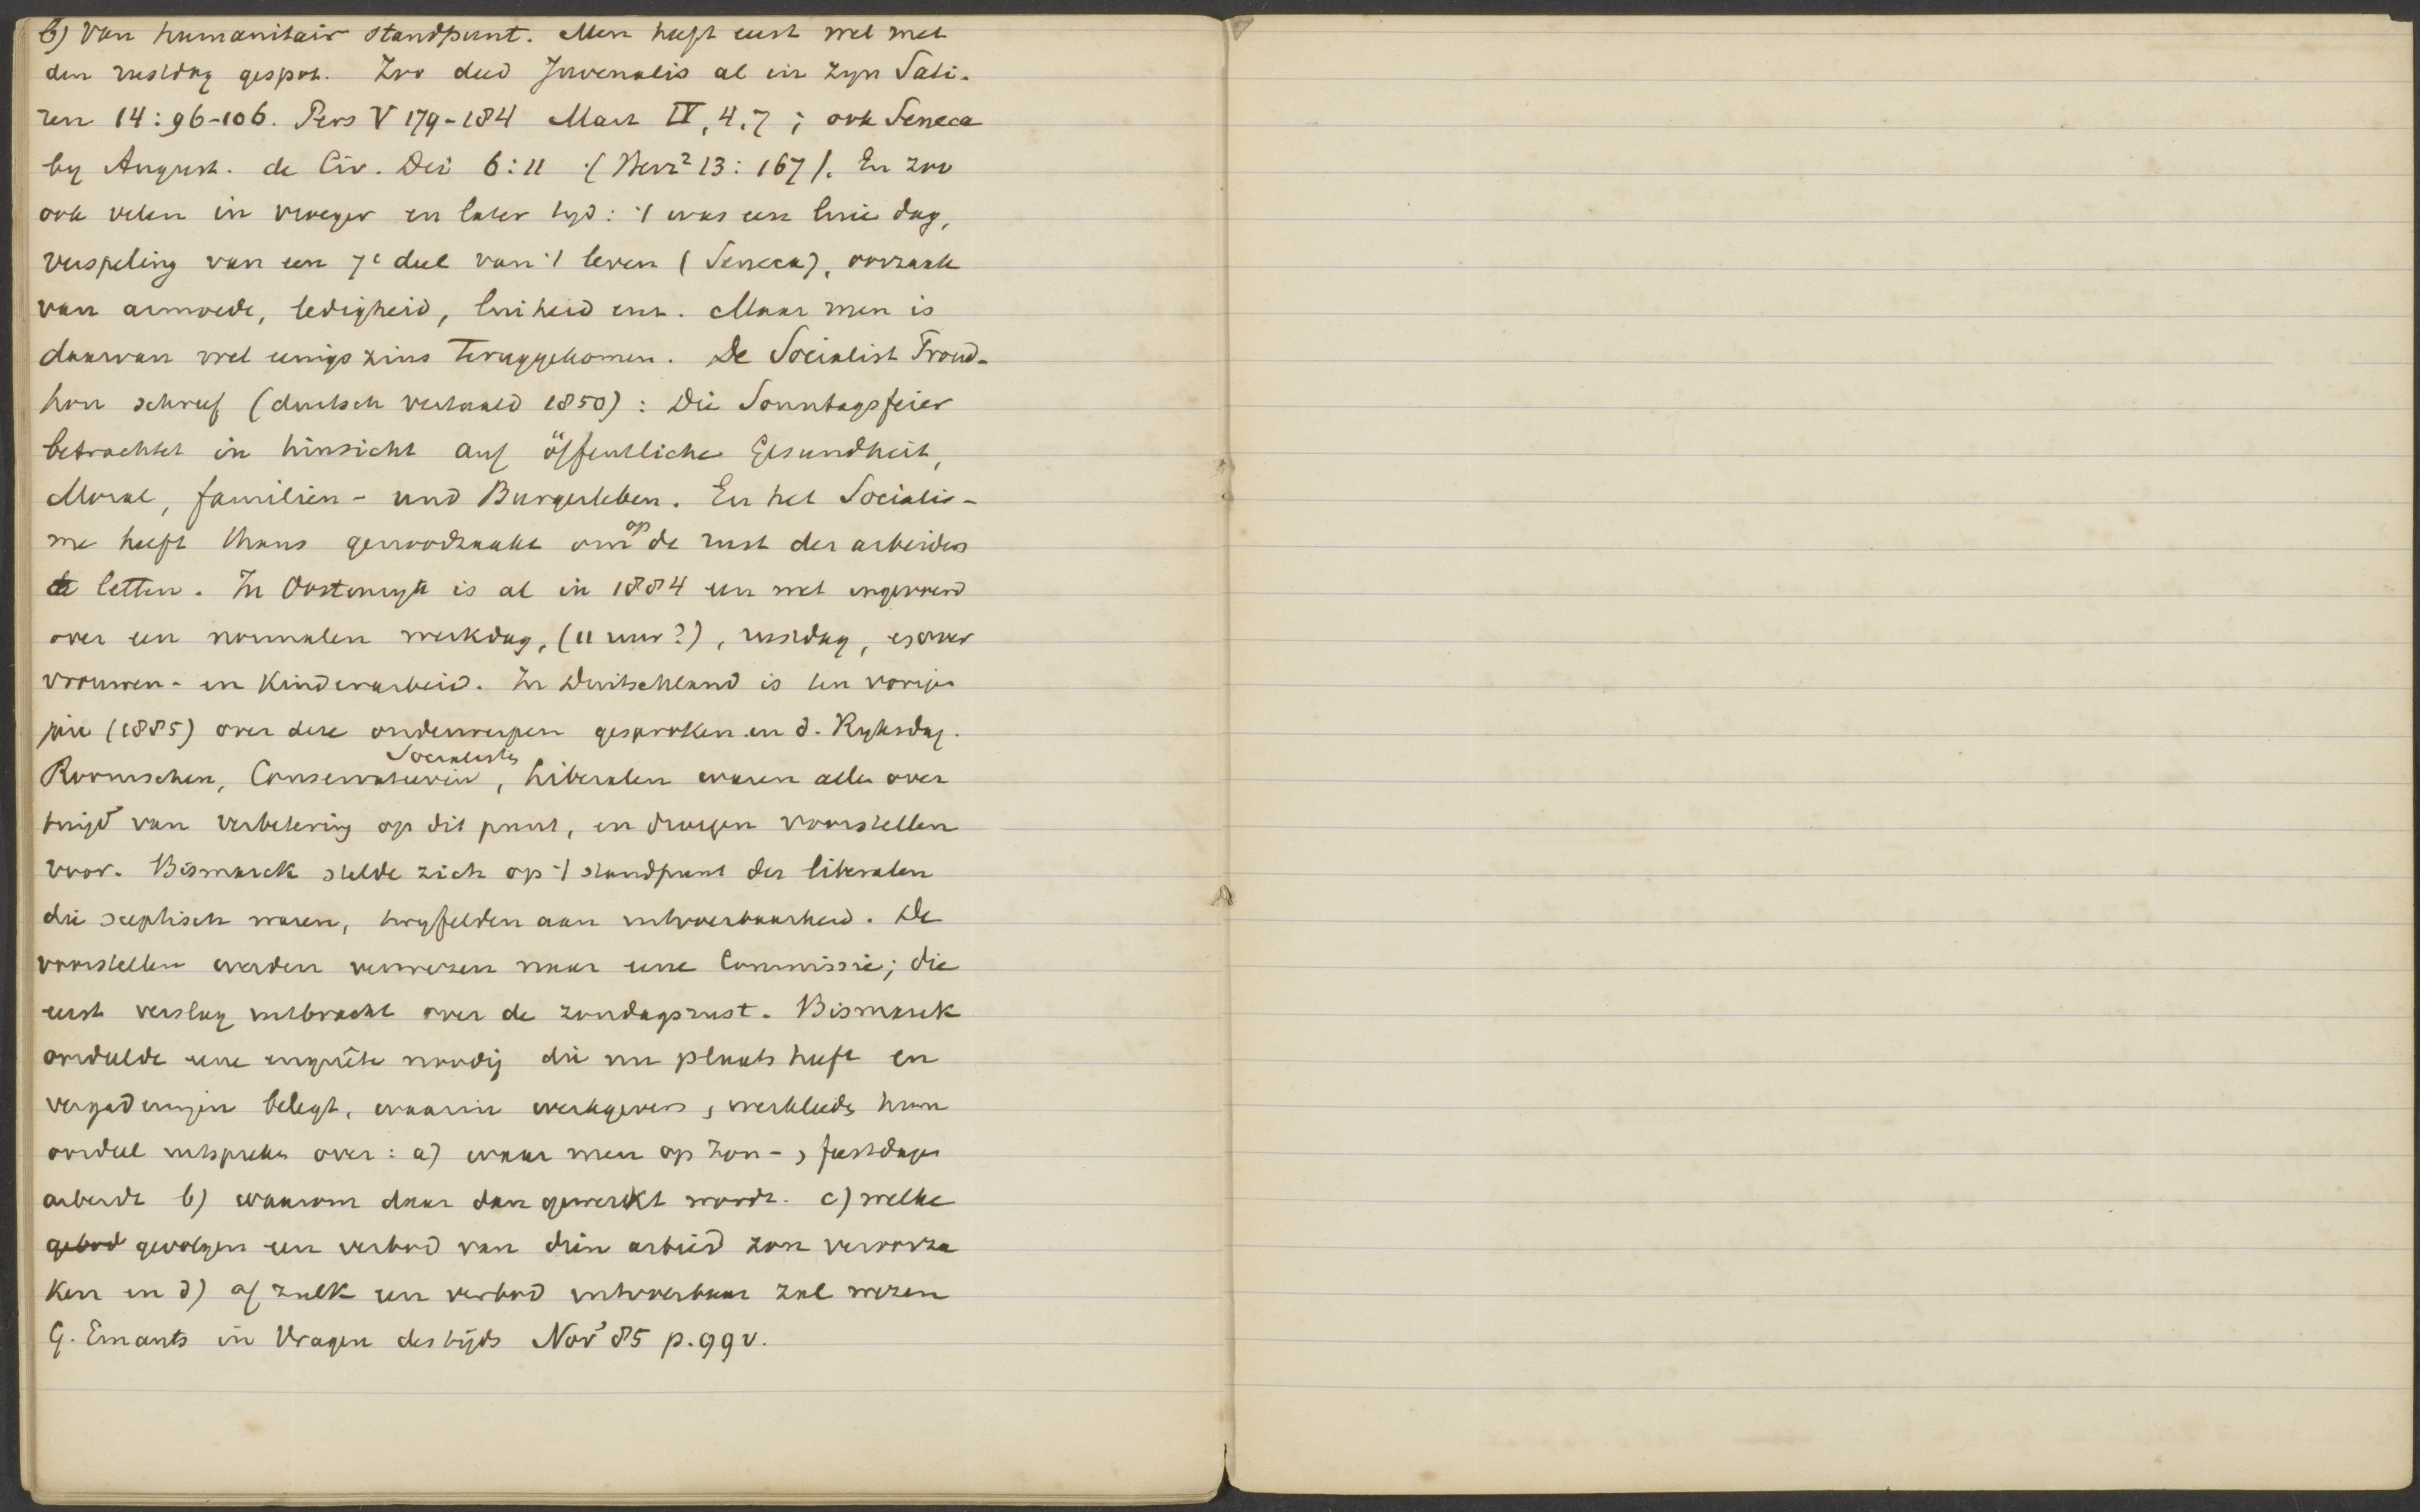 b) Van humanitair standpunt. Men heeft eerst wel met
den rustdag gespot. Zoo deed Juvenalis al in zyn Sati-
ren 14: 96-106. Pers V 179-184 Mart IV, 4, 7; ook Seneca
by August. de Civ. Dei 6:11 (Herz² 13: 167). En zoo
ook velen in vroeger en later tyd: 't was een luie dag,
verspeling van een 7e deel van 't leven (Seneca), oorzaak
van armoede, ledigheid, luiheid enz. Maar men is
daarvan wel eenigszins teruggekomen. De Socialist Proud-
hon schreef (duitsch vertaald 1850): Die Sonntagsfeier
betrachtet in hinsicht auf öffentliche Gesundheit,
Moral, familien- und Burgerleben. En het Socialis-
me heeft thans genoodzaakt om op de rust der arbeiders
te letten. In Oostenryk is al in 1884 een wet ingevoerd
over een normalen werkdag, (11 uur?), rustdag, over
vrouwen- en Kinderarbeid. In Duitschland is ten vorige
jare (1885) over deze onderwerpen gesproken in d. Ryksdag.
Roomschen, Conservatieven, Socialisten, Liberalen waren allen over
tuigd van verbetering op dit punt, en droegen voorstellen
voor. Bismarck stelde zich op 't standpunt der liberalen
die sceptisch waren, twyfelden aan uitvoerbaarheid. De
voorstellen werden verwezen naar eene Commissie; die
eerst verslag uitbracht over de zondagsrust. Bismarck
oordeelde eene enquête noodig die nu plaats heeft en
vergaderingen belegt, waarin werkgevers, werklieden hun
oordeel uitspreken over: a) waar men op Zon-, feestdagen
arbeidt b) waarom daar dan gewerkt wordt. c) welke
gebod gevolgen een verbod van dien arbeid zou veroorza
ken en d) of zulk een verbod uitvoerbaar zal wezen
G. Emants in Vragen des tijds Nov' 85 p. 99 v.